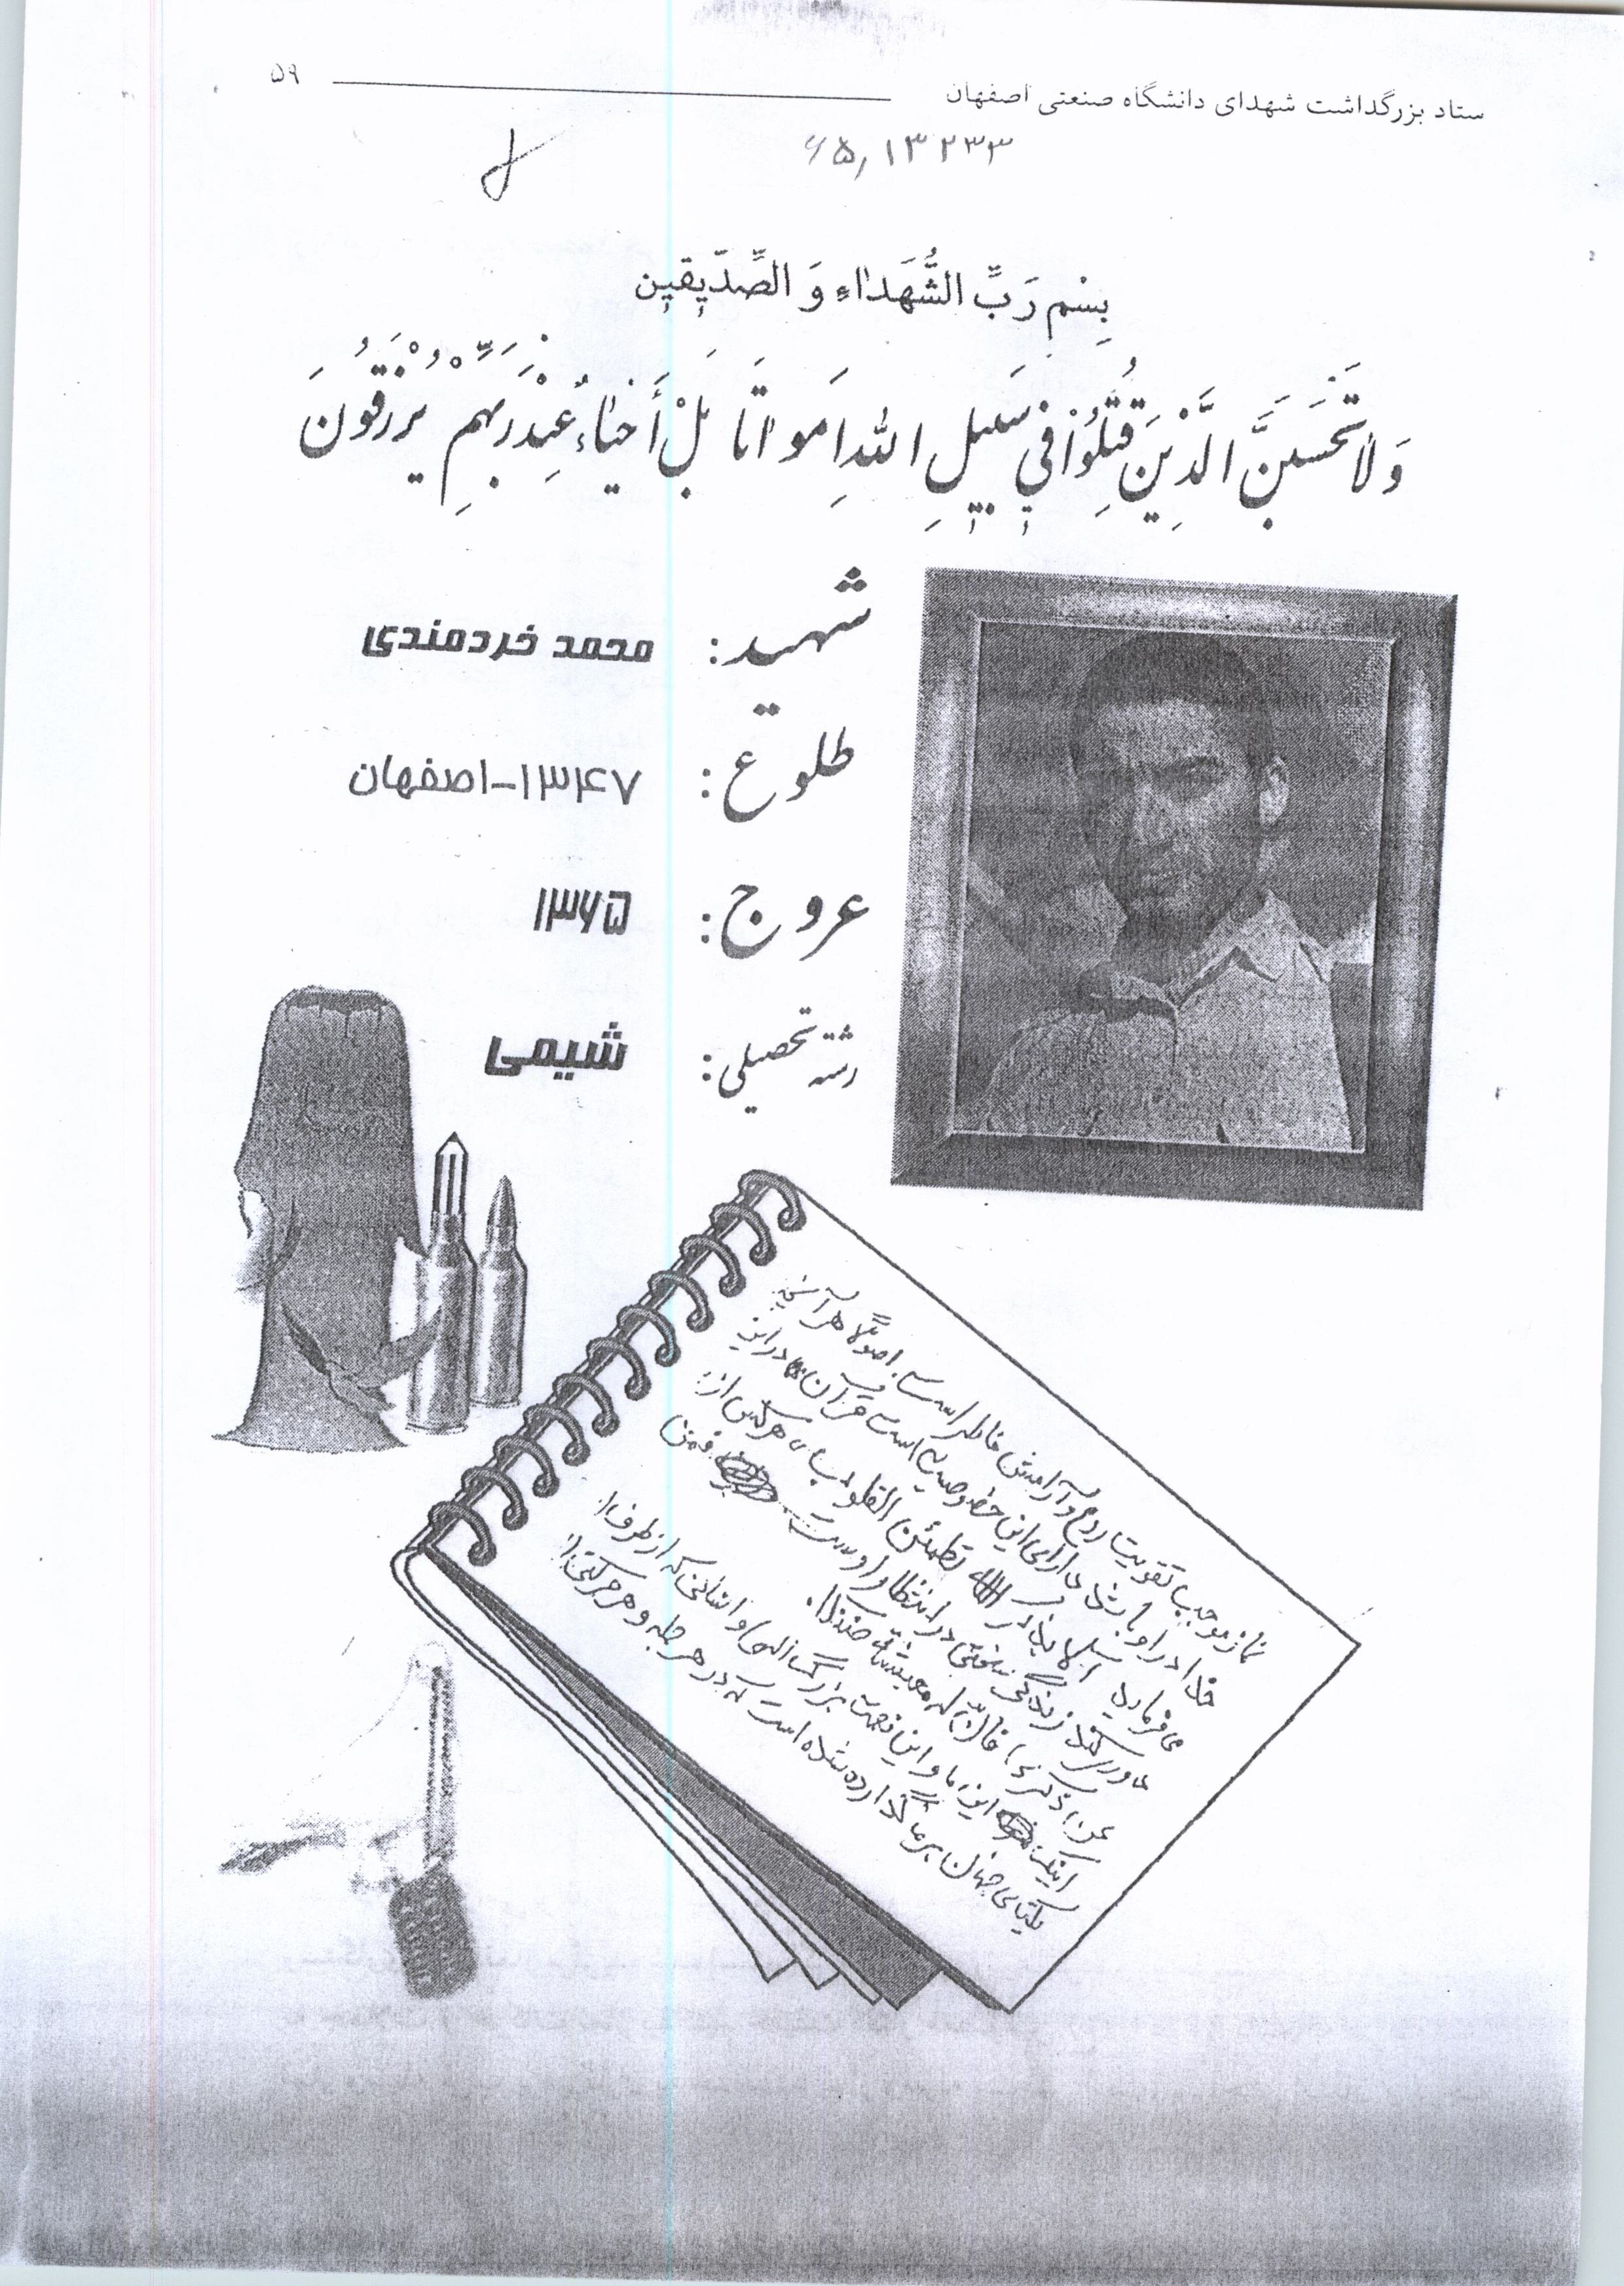 ستاد بزرگداشت شهدای دانشگاه صنعتی اصفهان ۵۹
۶۵,۱۳۲۳۳
بِسْمِ رَبِّ الشُّهَدٰاءِ وَ الصِّدّیٖقیٖن
وَلاٰتَحْسَبَنَّ الَّذْیِنَ قُتِلُوٰا فیٖ سَبیٖلِ اللهِ اَمواٰتَا بَلْ أَحْیٰاءُ عِنْدَ رَبِّهِمْ یُرْزَقُونَ
شهید: محمد خردمندی
طلوع: ۱۳۴۷-اصفهان
عروج: ۱۳۶۵
رشته تحصیلی: شیمی
نماز موجب تقویت روح و آرامش خاطر است. اصولاً هر آنچه
خدا در او باشد دارای این خصوصیه است قرآن در این
می فرماید الا بذکر الله تطمئن القلوب هر کس از
دوری کند زندگی سختی در انتظار اوست فمن
عن ذکری فان له معیشة ضنکا.
اینک این ما و این نعمت بزرگ الهی و انسانی که از طرف
یکتای جهان بر ما گذارده شده است که در هر حله و هر حرکتی